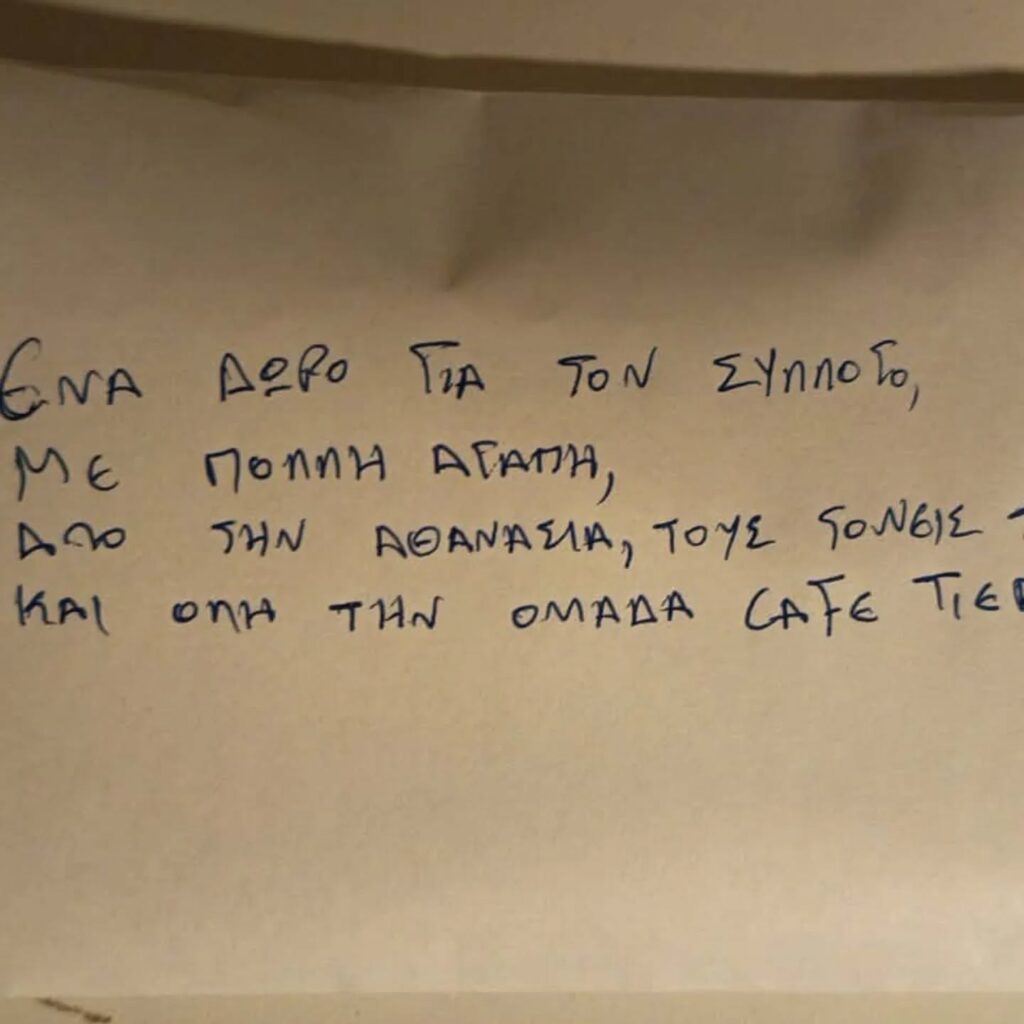 ΕΝΑ ΔΩΡΟ ΓΙΑ ΤΟΝ ΣΥΛΛΟΓΟ,
ΜΕ ΠΟΛΛΗ ΑΓΑΠΗ,
ΑΠΟ ΤΗΝ ΑΘΑΝΑΣΙΑ, ΤΟΥΣ ΓΟΝΕΙΣ
ΚΑΙ ΟΛΗ ΤΗΝ ΟΜΑΔΑ CAFE